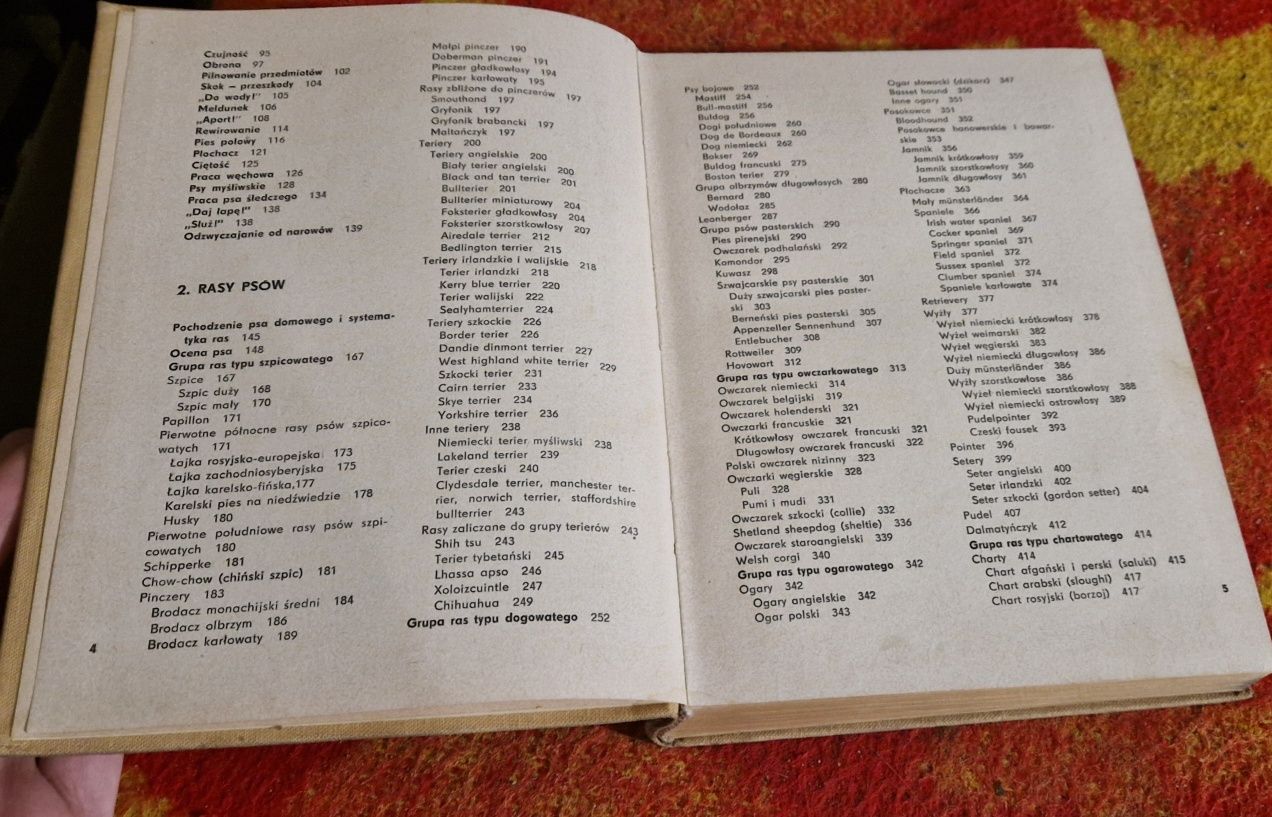 Czujność 95
Obrona 97
Pilnowanie przedmiotów 102
Skok — przeszkody 104
„Do wody!" 105
Meldunek 106
„Aport!" 108
Rewirowanie 114
Pies polowy 116
Płochacz 121
Ciętość 125
Praca węchowa 126
Psy myśliwskie 128
Praca psa śledczego 134
„Daj łapę!" 138
„Służ!" 138
Odzwyczajanie od narowów 139
2. RASY PSÓW
Pochodzenie psa domowego i systema-
tyka ras 145
Ocena psa 148
Grupa ras typu szpicowatego 167
Szpice 167
Szpic duży 168
Szpic mały 170
Papillon 171
Pierwotne północne rasy psów szpico-
watych 171
Łajka rosyjsko-europejska 173
Łajka zachodniosyberyjska 175
Łajka karelsko-fińska,177
Karelski pies na niedźwiedzie 178
Husky 180
Pierwotne południowe rasy psów szpi-
cowatych 180
Schipperke 181
Chow-chow (chiński szpic) 181
Pinczery 183
Brodacz monachijski średni 184
Brodacz olbrzym 186
Brodacz karłowaty 189
4
Małpi pinczer 190
Doberman pinczer 191
Pinczer gładkowłosy 194
Pinczer karłowaty 195
Rasy zbliżone do pinczerów 197
Smouthond 197
Gryfonik 197
Gryfonik brabancki 197
Maltańczyk 197
Teriery 200
Teriery angielskie 200
Biały terier angielski 200
Black and tan terrier 201
Bullterier 201
Bullterier miniaturowy 204
Foksterier gładkowłosy 204
Foksterier szorstkowłosy 207
Airedale terrier 212
Bedlington terrier 215
Teriery irlandzkie i walijskie 218
Terier irlandzki 218
Kerry blue terrier 220
Terier walijski 222
Sealyhamterrier 224
Teriery szkockie 226
Border terier 226
Dandie dinmont terrier 227
West highland white terrier 229
Szkocki terier 231
Cairn terrier 233
Skye terrier 234
Yorkshire terrier 236
Inne teriery 238
Niemiecki terier myśliwski 238
Lakeland terrier 239
Terier czeski 240
Clydesdale terrier, manchester ter-
rier, norwich terrier, staffordshire
bullterrier 243
Rasy zaliczane do grupy terierów 243
Shih tsu 243
Terier tybetański 245
Lhassa apso 246
Xoloizcuintle 247
Chihuahua 249
Grupa ras typu dogowatego 252
Psy bojowe 252
Mastiff 254
Bull-mastiff 256
Buldog 256
Dogi południowe 260
Dog de Bordeaux 260
Dog niemiecki 262
Bokser 269
Buldog francuski 275
Boston terier 279
Grupa olbrzymów długowłosych 280
Bernard 280
Wodołaz 285
Leonberger 287
Grupa psów pasterskich 290
Pies pirenejski 290
Owczarek podhalański 292
Komondor 295
Kuwasz 298
Szwajcarskie psy pasterskie 301
Duży szwajcarski pies paster-
ski 303
Berneński pies pasterski 305
Appenzeller Sennenhund 307
Entlebucher 308
Rottweiler 309
Hovowart 312
Grupa ras typu owczarkowatego 313
Owczarek niemiecki 314
Owczarek belgijski 319
Owczarek holenderski 321
Owczarki francuskie 321
Krótkowłosy owczarek francuski 321
Długowłosy owczarek francuski 322
Polski owczarek nizinny 323
Owczarki węgierskie 328
Puli 328
Pumi i mudi 331
Owczarek szkocki (collie) 332
Shetland sheepdog (sheltie) 336
Owczarek staroangielski 339
Welsh corgi 340
Grupa ras typu ogarowatego 342
Ogary 342
Ogary angielskie 342
Ogar polski 343
Ogar słowacki (dzikarz) 347
Basset hound 350
Inne ogary 351
Posokowce 351
Bloodhound 352
Posokowce hanowerskie i bawar-
skie 353
Jamnik 356
Jamnik krótkowłosy 359
Jamnik szorstkowłosy 360
Jamnik długowłosy 361
Płochacze 363
Mały münsterländer 364
Spaniele 366
Irish water spaniel 367
Cocker spaniel 369
Springer spaniel 371
Field spaniel 372
Sussex spaniel 372
Clumber spaniel 374
Spaniele karłowate 374
Retrievery 377
Wyżły 377
Wyżeł niemiecki krótkowłosy 378
Wyżeł weimarski 382
Wyżeł węgierski 383
Wyżeł niemiecki długowłosy 386
Duży münsterländer 386
Wyżły szorstkowłose 386
Wyżeł niemiecki szorstkowłosy 388
Wyżeł niemiecki ostrowłosy 389
Pudelpointer 392
Czeski fousek 393
Pointer 396
Setery 399
Seter angielski 400
Seter irlandzki 402
Seter szkocki (gordon setter) 404
Pudel 407
Dalmatyńczyk 412
Grupa ras typu chartowatego 414
Charty 414
Chart afgański i perski (saluki) 415
Chart arabski (sloughi) 417
Chart rosyjski (borzoj) 417
5